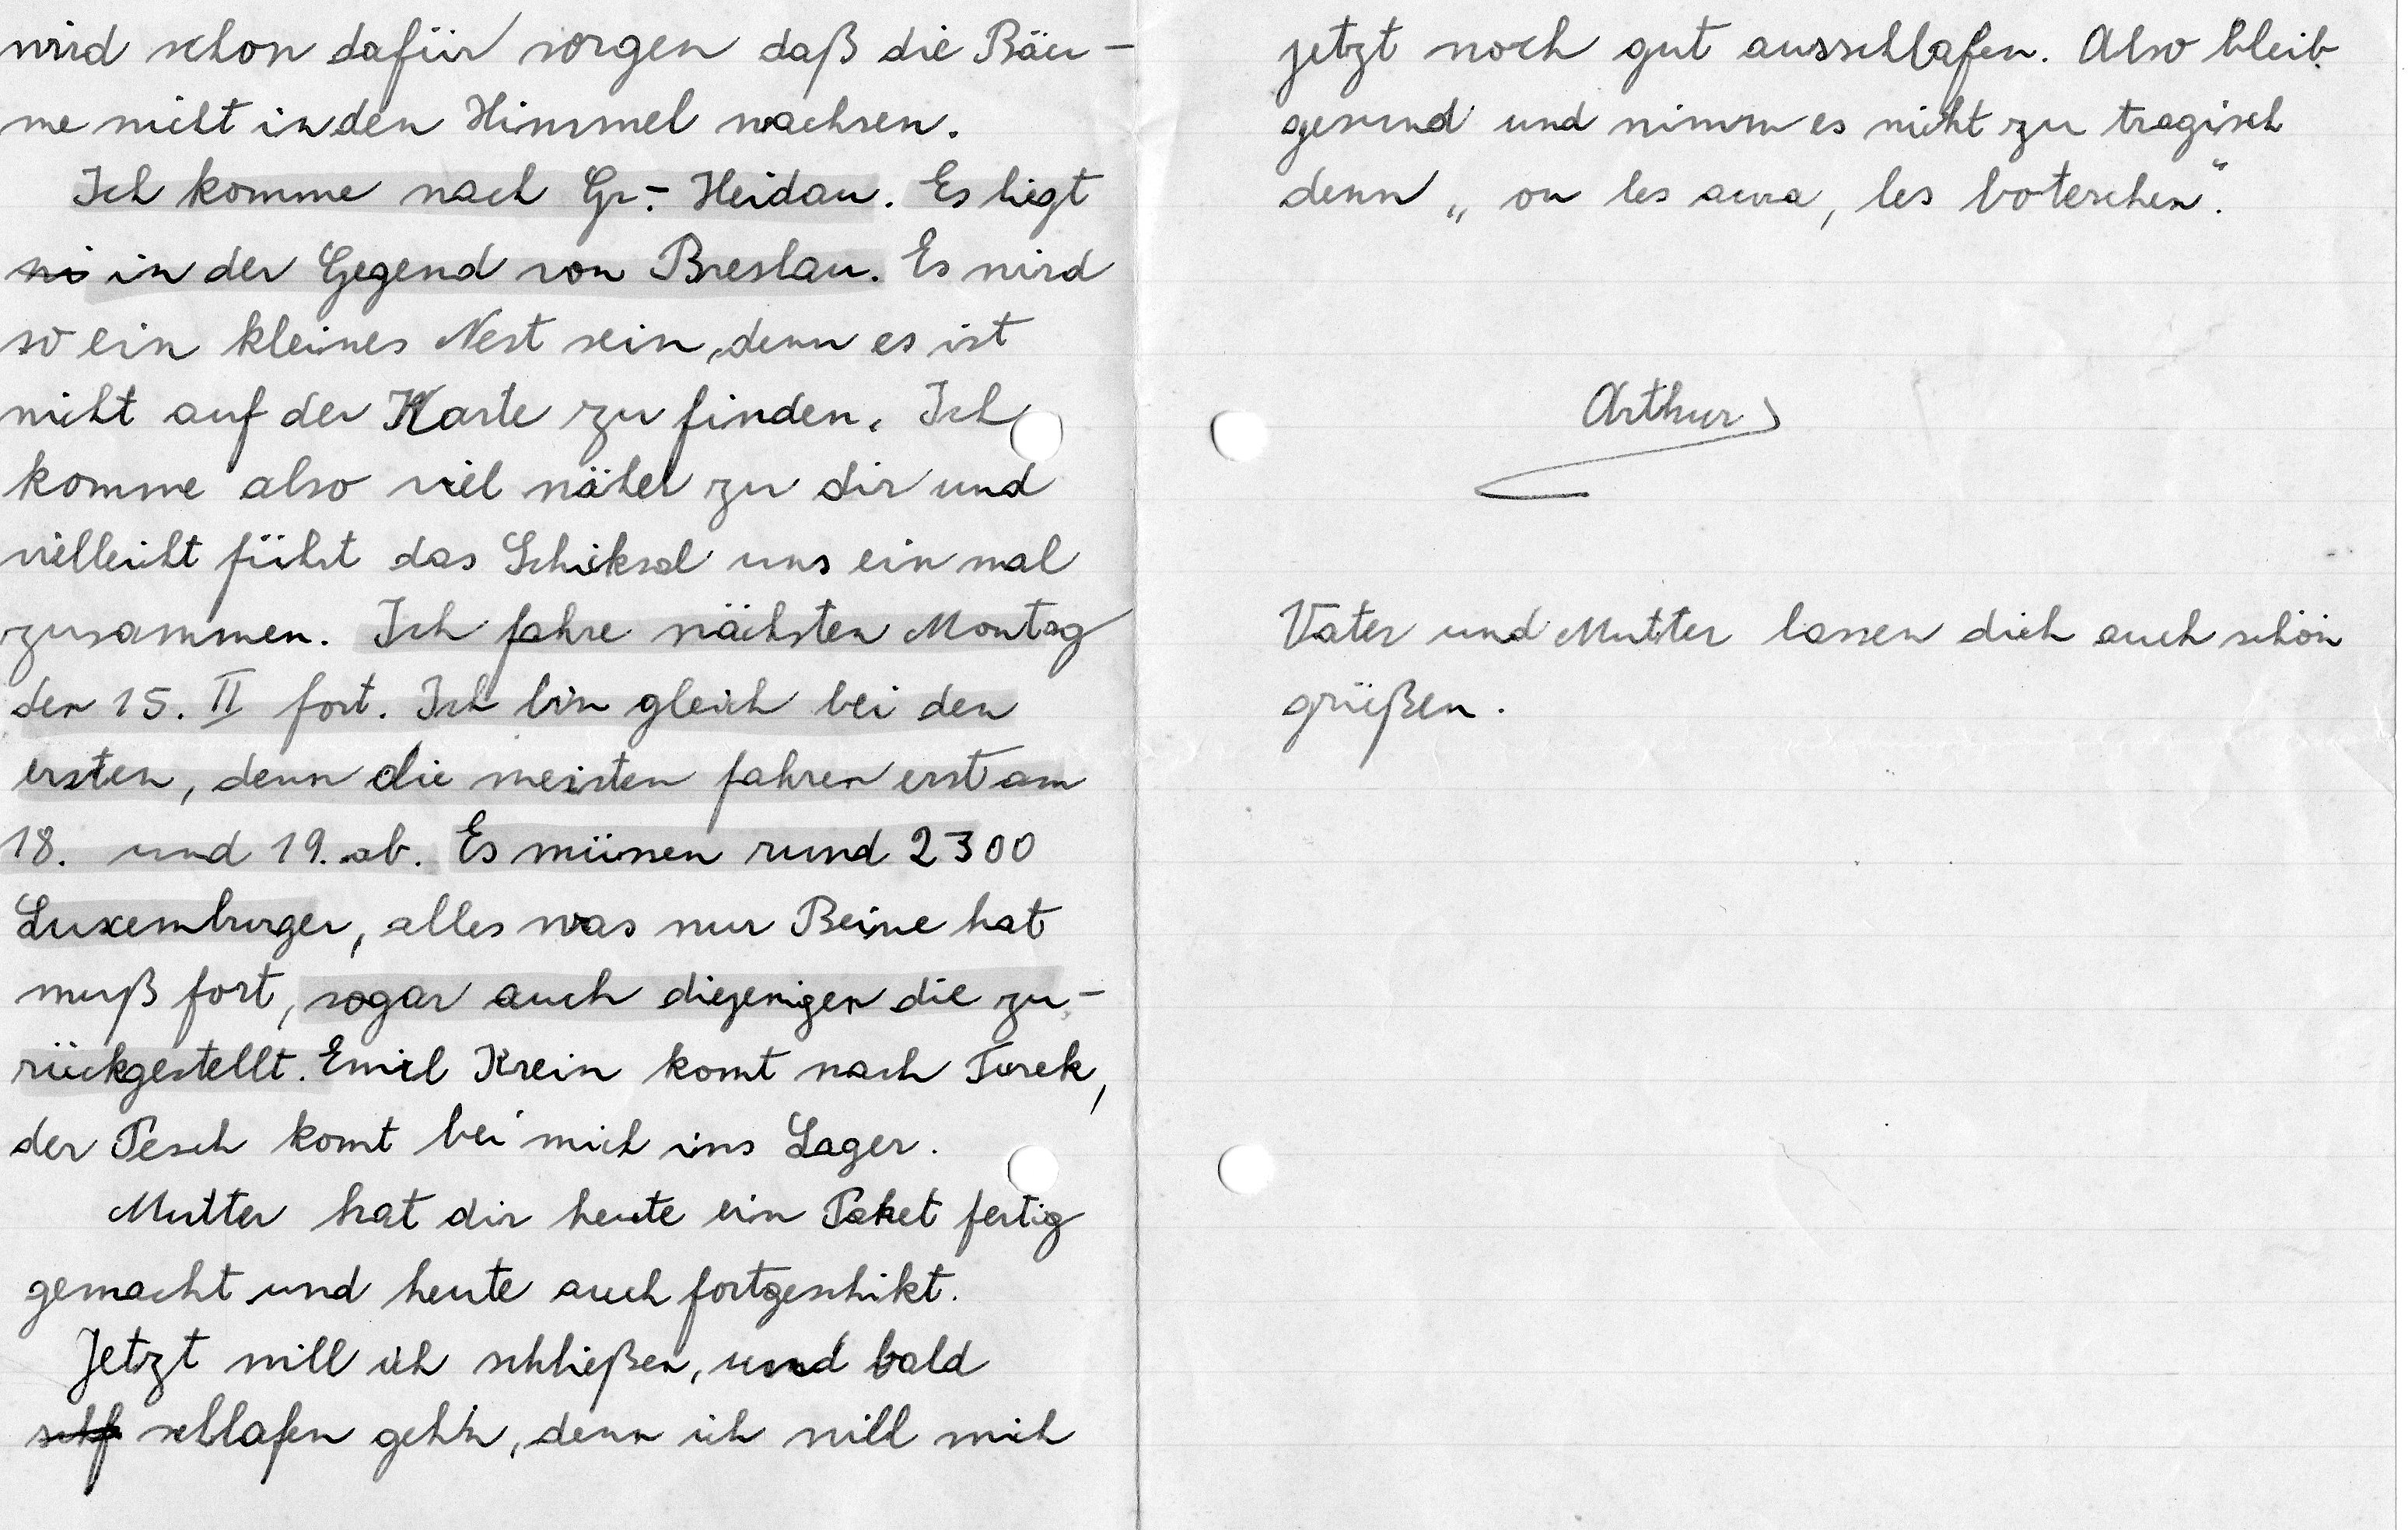 wird schon dafür sorgen daß die Bäu-
me nicht in den Himmel wachsen.
Ich komme nach Gr.- Heidau. Es liegt
in der Gegend von Breslau. Es wird
so ein kleines Nest sein, denn es ist
nicht auf der Karte zu finden. Ich
komme also viel näher zu dir und
vielleicht führt das Schiksal uns ein mal
zusammen. Ich fahre nächsten Montag
den 15. II fort. Ich bin gleich bei den
ersten, denn die meisten fahren erst am
18. und 19. ab. Es müssen rund 2300
Luxemburger, alles was nur Beine hat
muß fort, sogar auch diejenigen die zu-
rückgestellt. Emil Krein komt nach Turek,
der Pesch komt bei mich ins Lager.
Mutter hat dir heute ein Paket fertig
gemacht und heute auch fortgeschikt.
Jetzt will ich schließen, und bald
schlafen geh'n, denn ich will mich
jetzt noch gut ausschlafen. Also bleib
gesund und nimm es nicht zu tragisch
denn „ on les aura, les boteschen".
Arthur
Vater und Mutter lassen dich auch schön
grüßen.